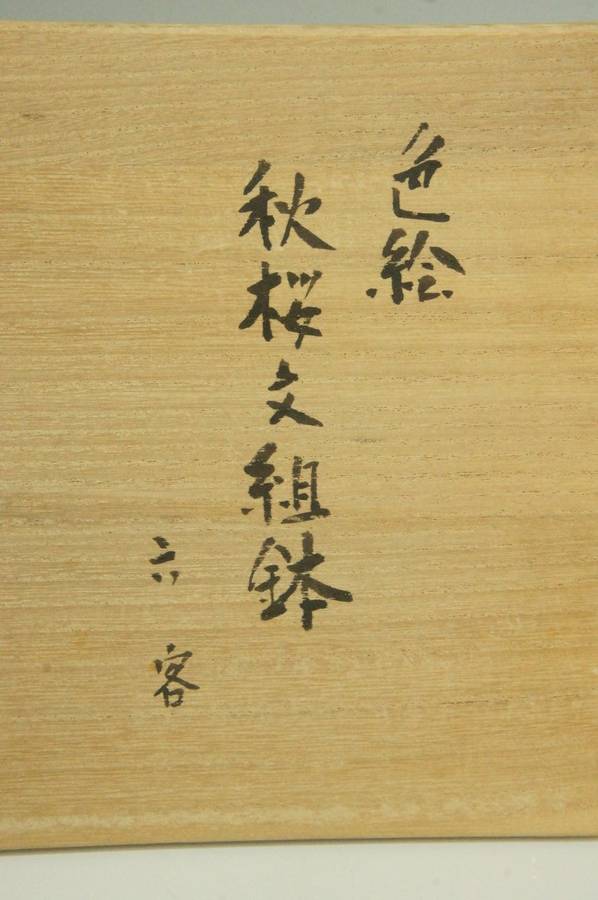 色絵
秋桜文組鉢
六客